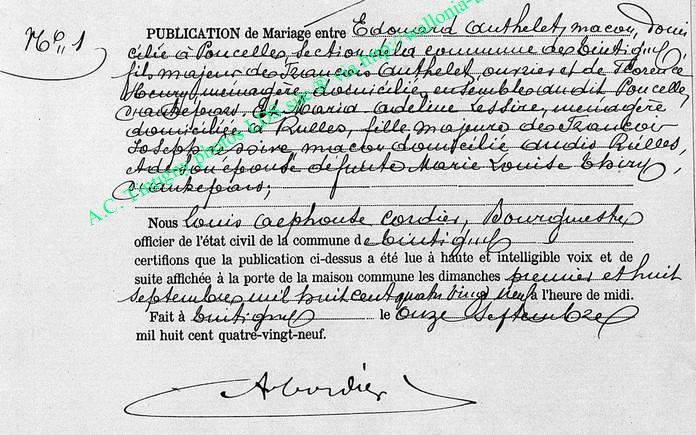 N° 1
PUBLICATION de Mariage entre Edouard Authelet, maçon, domi
ciliée à Poncelle, section de la commune de Tintigny,
fils majeur de François Authelet, ouvrier et de Florence
ménagère, domiciliés ensemble audit Poncelle,
Et Maria Adeline Lessire, ménagère
domiciliée à Rulles, fille majeure de François
Joseph Lessire, maçon domicilié audit Rulles,
et de son épouse défunte Marie Louise Thiry,
Nous Louis Alphonse Cordier, Bourgmestre,
officier de l'état civil de la commune de Tintigny
certifions que la publication ci-dessus a été lue à haute et intelligible voix et de
suite affichée à la porte de la maison commune les dimanches premier et huit
septembre mil huit cent quatre vingt neuf à l'heure de midi.
Fait à Tintigny le onze septembre
mil huit cent quatre-vingt-neuf.
A Cordier
A.C. Tintigny photos LDS site © via http://wallonia-